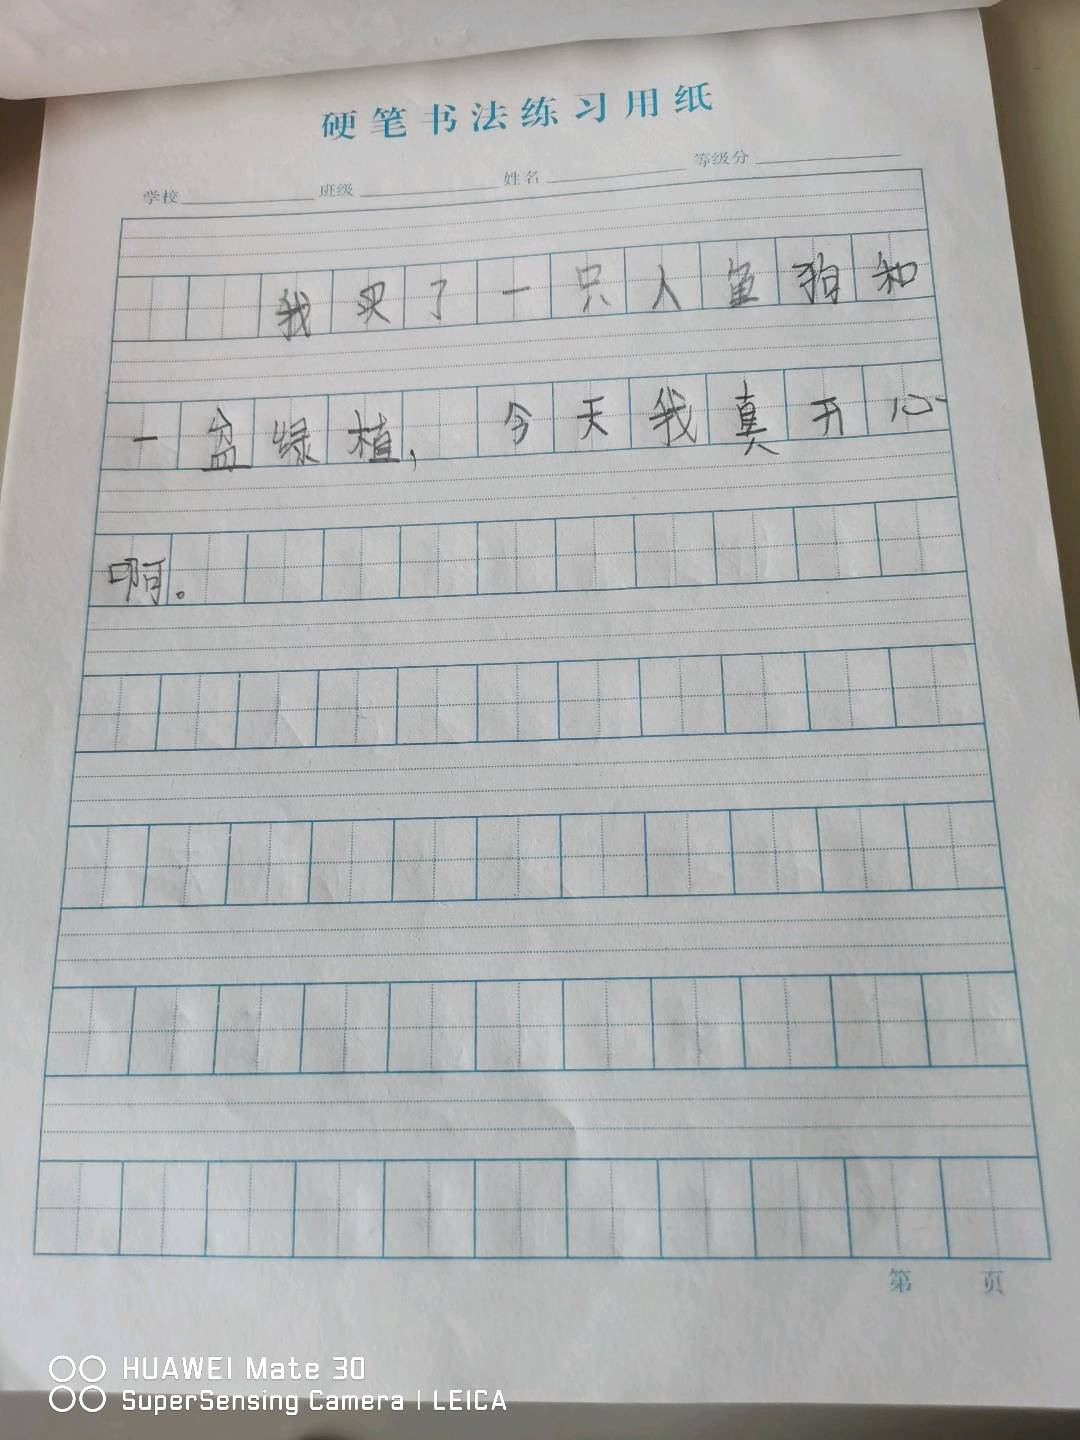 硬笔书法练习用纸
学校 班级 姓名 等级分
我买了一只人鱼狗和
一盆绿植，今天我真开心
啊。
第 页
HUAWEI Mate 30
SuperSensing Camera | LEICA